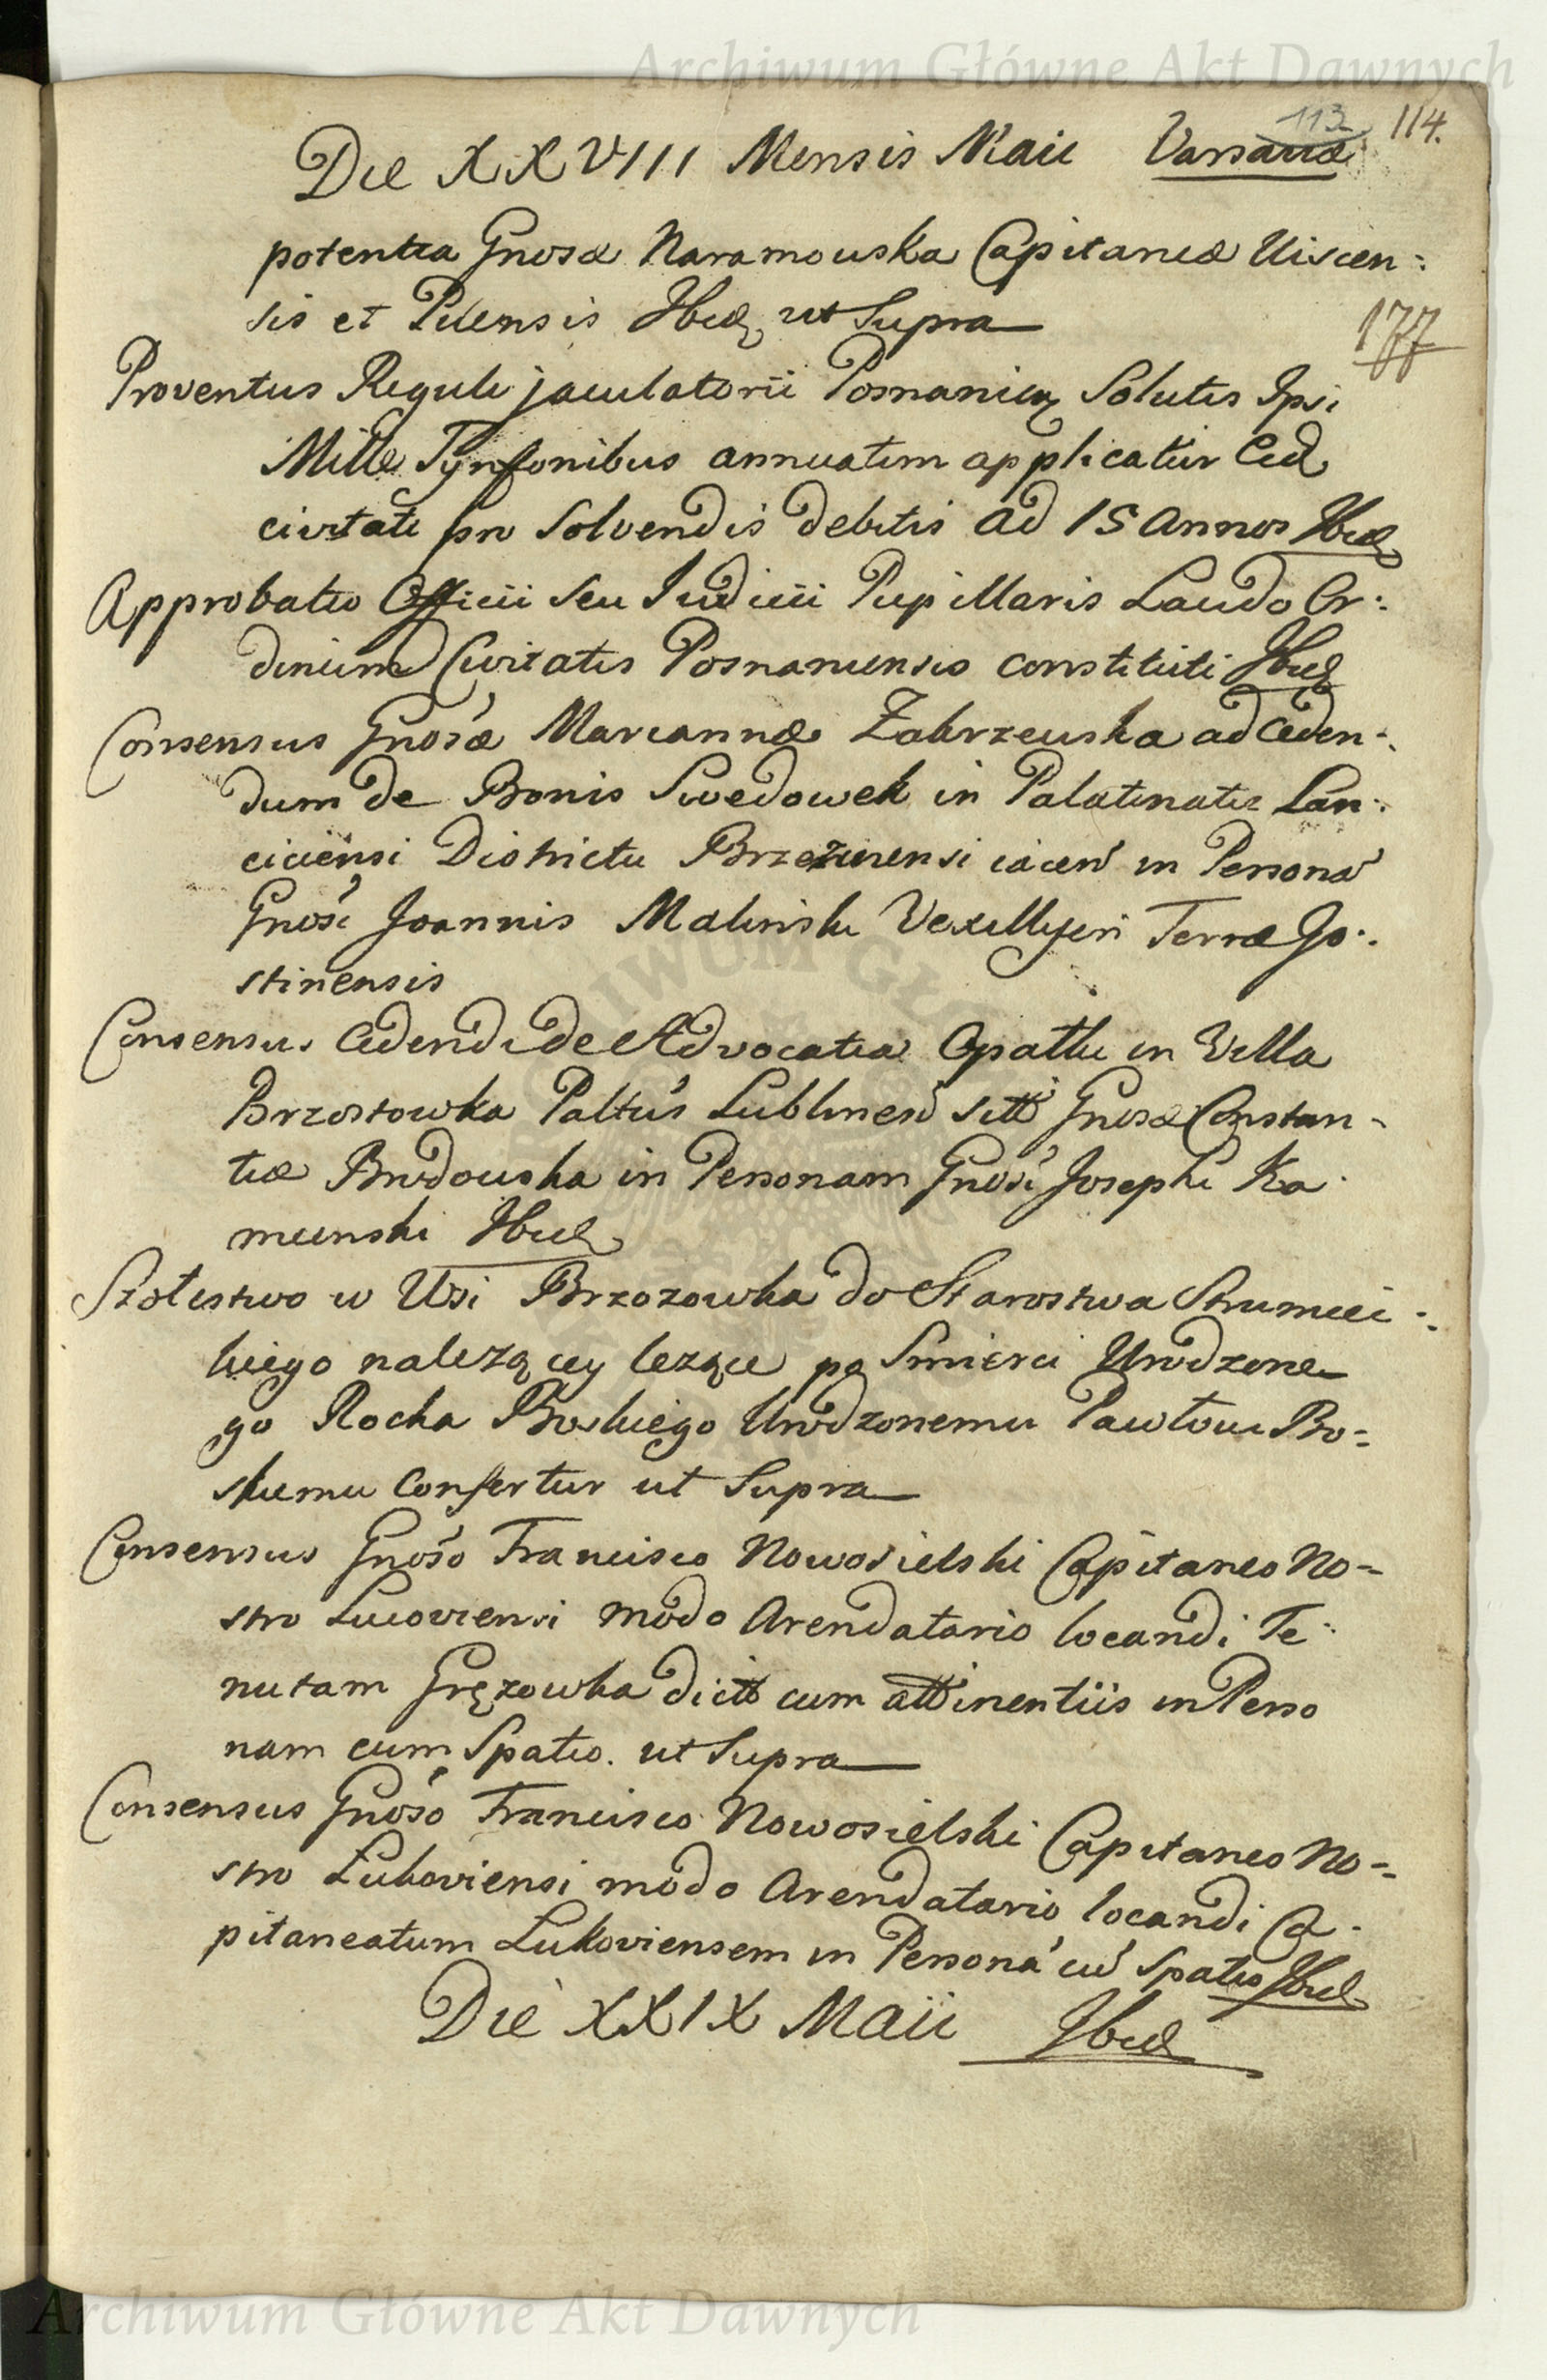 Archiwum Główne Akt Dawnych
113 114.
Die XXVIII Mensis Maii Varsaviæ
potentia Gnosæ Naramowska Capitaneæ Uiscen:
sis et Pilensis Ibid. ut Supra
177
Proventus Reguli jaculatorii Posnaniens Solutis Ipsi
Mille Tynfonibus annuatim applicatur Eid
civitati pro Solvendis debitis ad 15 annos Ibid
Approbatio Officii seu Judicii Pupillaris Laudo Or:
dinum Civitatis Posnaniensis constituti Ibid
Consensus Gnosæ Mariannæ Zabrzewska ad Ceden:
dum de Bonis Swedowek in Palatinatu Lan:
ciciensi Districtu Brzezinensi iacen in Personá
Gnosi Joannis Malinski Vexilliferi Terræ Go:
stinensis
Consensus Cedendi de Advocatia Opatki in Villa
Brzostowka Paltús Lublinen sitt Gnosæ Constan-
tiæ Brodowska in Personam Gnosi Josephi Ka
mienski Ibid
Szołtestwo w Wsi Brzozowka do Starostwa Strumiei:
kiego nalezącey lezące po Smierci Urodzone
go Rocha Boskiego Urodzonemu Pawłowi Bo=
skiemu Confertur ut Supra
Consensus Gnoso Francisco Nowosielski Capitaneo No=
stro Lucoviensi modo Arendatario locandi Te:
nutam Gręzowka dictt cum attinentiis in Perso
nam cum Spatio. ut Supra
Consensus Gnoso Francisco Nowosielski Capitaneo No=
stro Lukoviensi modo Arendatario locandi Ca-
pitaneatum Lukoviensem in Personá cú Spatio Ibid
Die XXIX Maii Ibid
Archiwum Główne Akt Dawnych